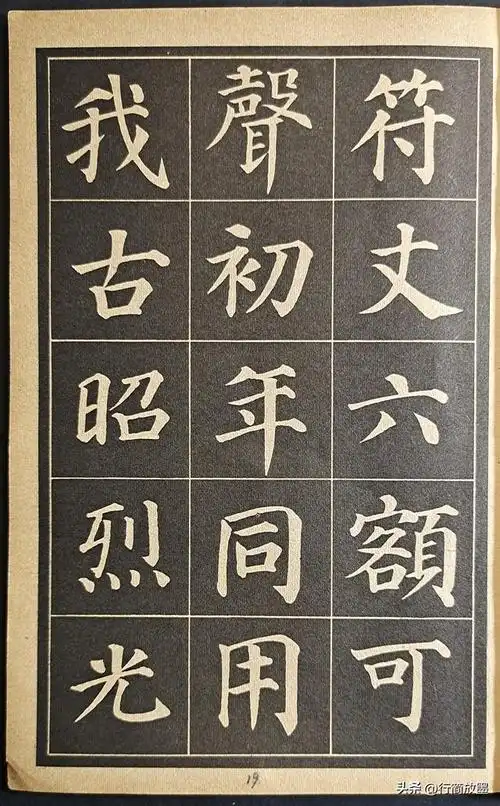 符丈六額可
聲初年同用
我古昭烈光
19
头条 @行商放墨